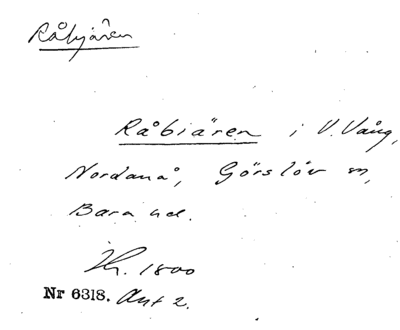 Råbjären
Råbiären i V. Vång,
Nordanå, Görslöv sn,
Bara hd.
1800
Nr 6318. Akt 2.